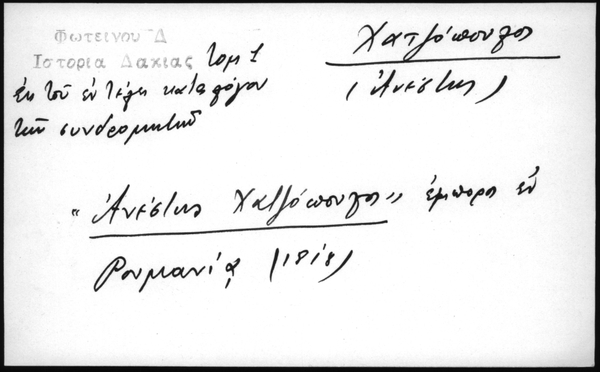 Φωτεινου Δ
Ιστορια Δακιας τομ 1
ἐκ τοῦ ἐν τέλει καταλόγου
τῶν συνδρομητῶν
Χατζόπουλος
(Ἀνέστης)
"Ἀνέστης Χατζόπουλος" ἔμπορος ἐν
Ρουμανίᾳ (1818)